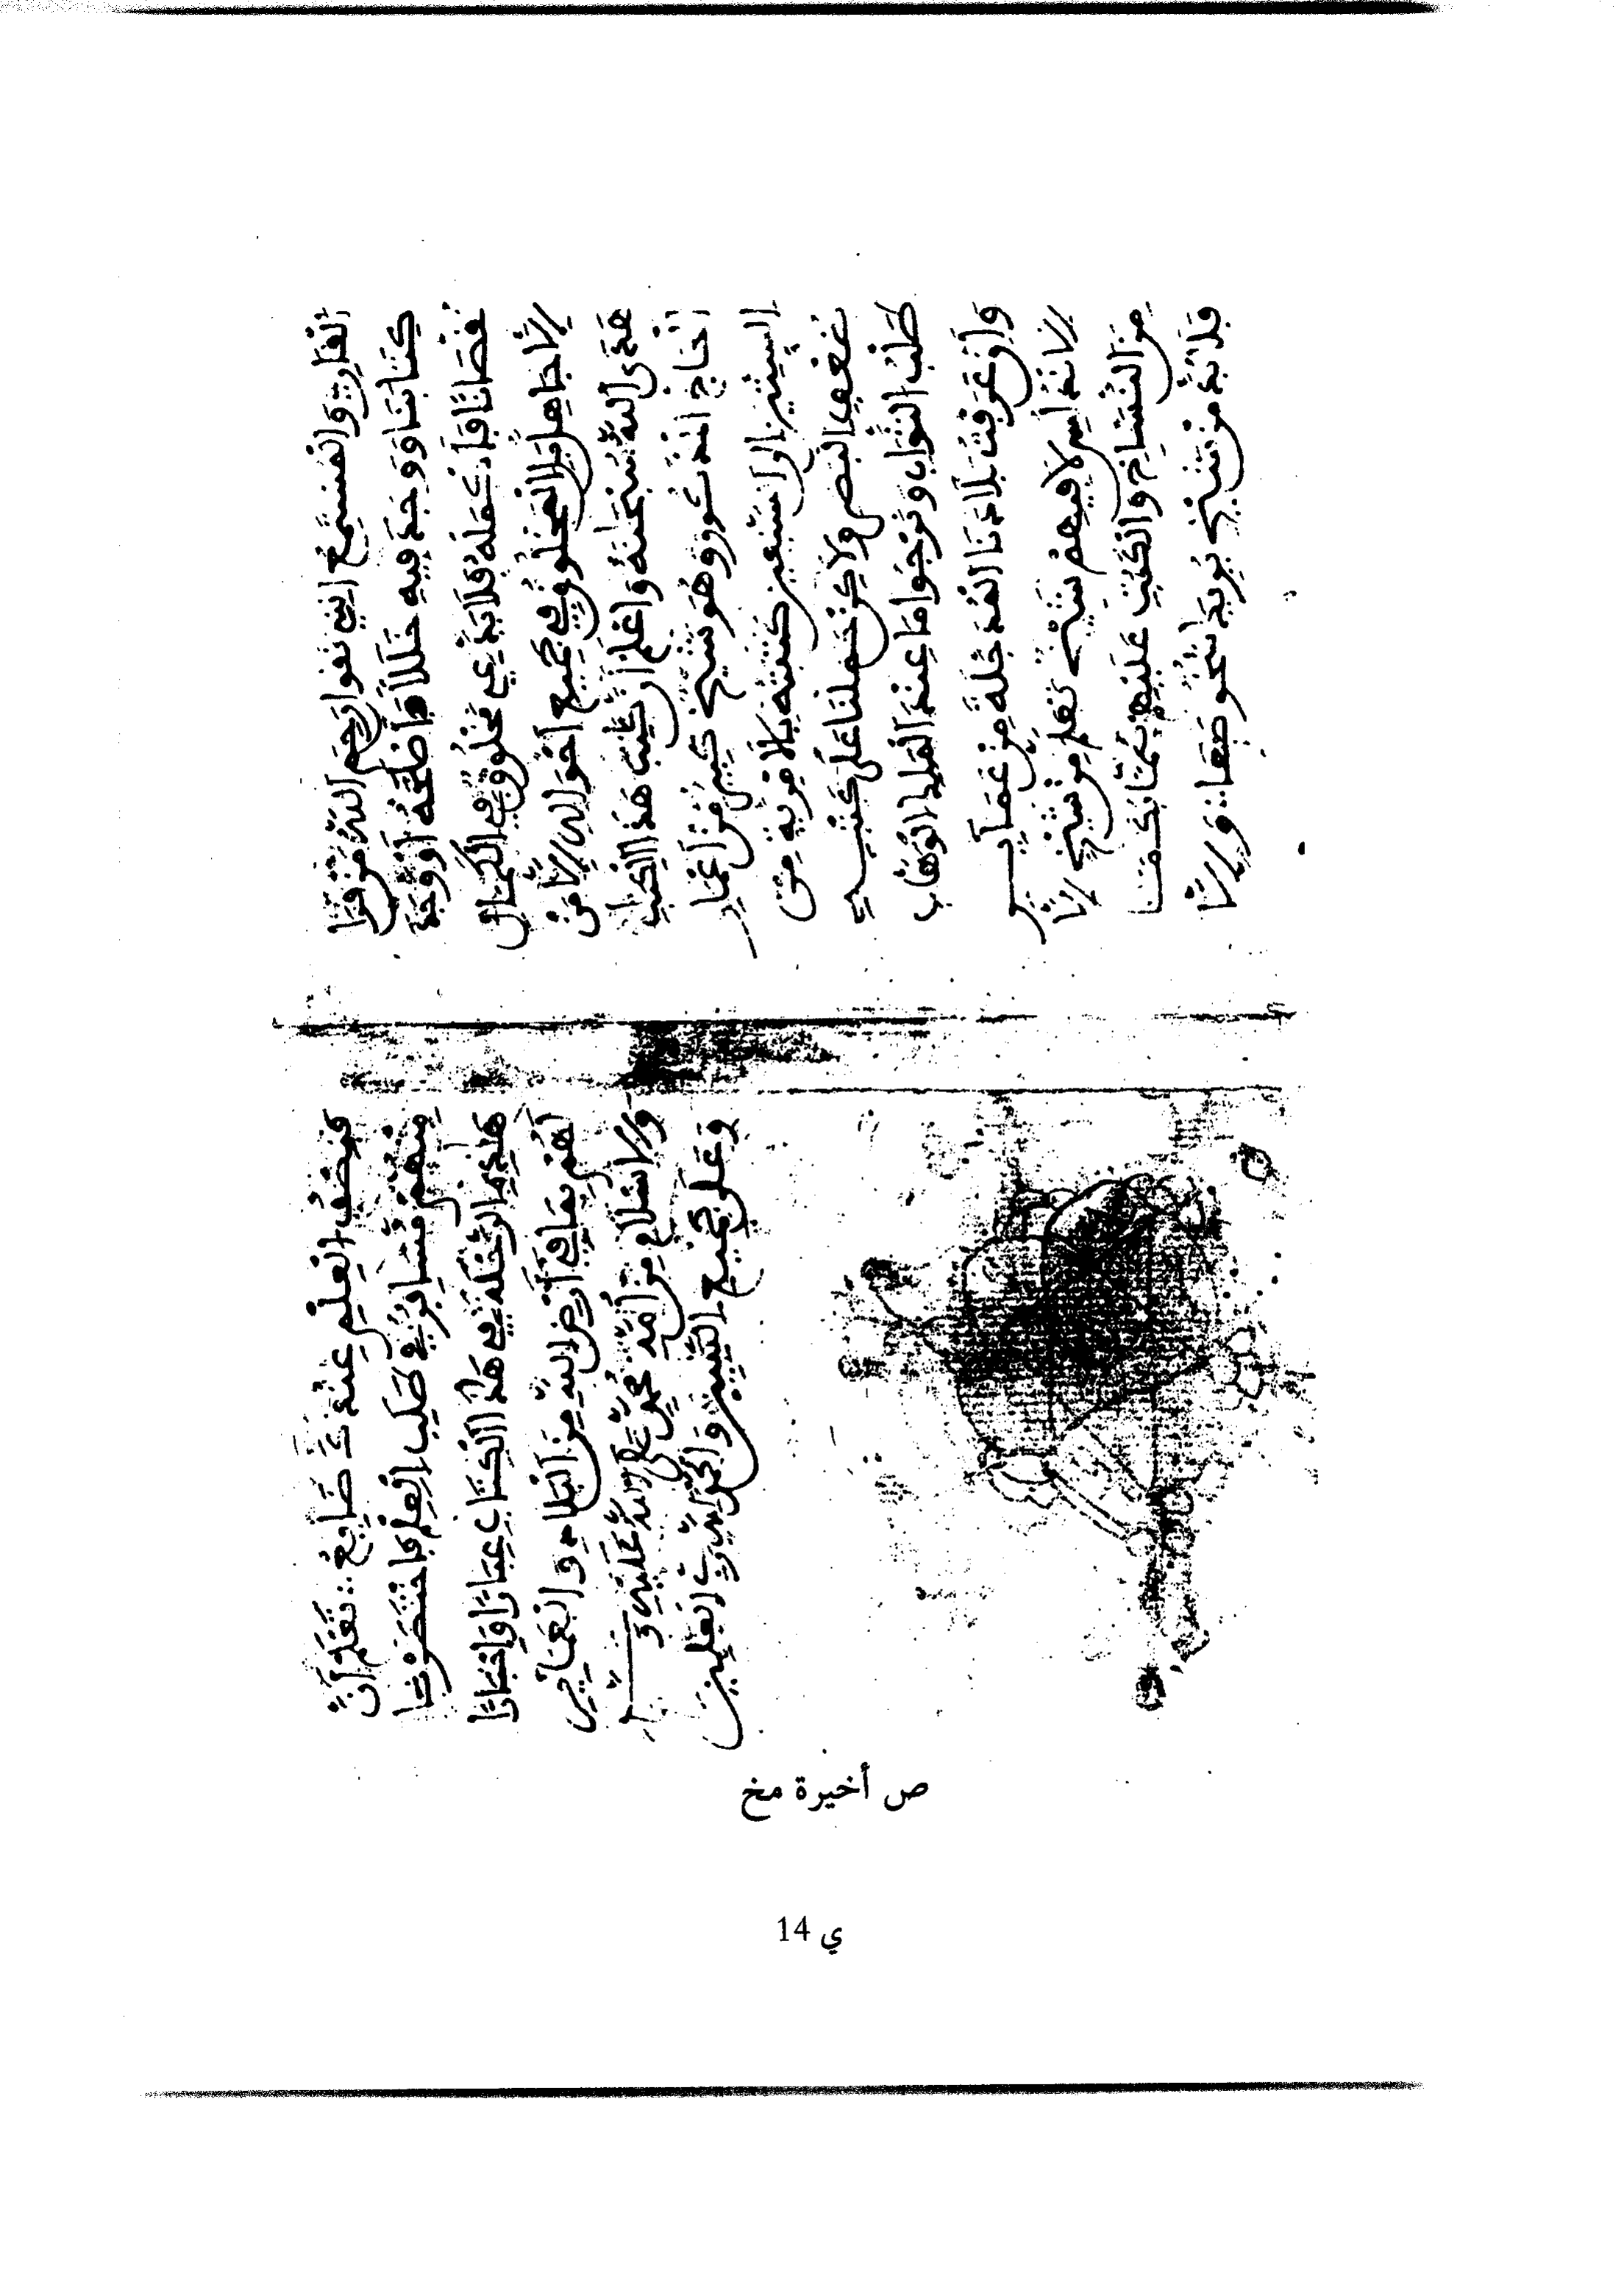 القارئ والمستمع رحم الله من قرأ
كتابنا ووجد فيه خللا فأصلحه أو وجد
نقصانا فأكمله فلا بد في مخلوق الكمال
إلا جاهلا بالمخلوق في جميع أحواله إلا من
هدى الله سبحنه واعلم أن كتب هذا الكتاب
الحاج وهو شيخ كبير من أعمار
الستين او اسبعين كتبته بلا مرية من
ضعف البصر ولاكن حملنا على كتبه
طلب الثواب ونرجوا ما عند الملك الوهاب
وان عرفت بلادنا من
لانه ليس لا فيهم شيخ تعلم من شيخ إلا
من النساخ والكتب عليهم
فلا بد من شيخ يريد النحو صفات وإلا
فنصف العلم عنده ضايع تعلم أن
منهم مسافر في طلب العلم فاختصرنا
هذه الرحلة في هذا الكتاب عبارا واخبارا
لهم بما في أرض الله من البلاء والعمائر
والسلام من محمد صلى الله عليه و
وعلى جميع النبيين والحمد لله رب العلمين
ص أخيرة مخ
ي 14